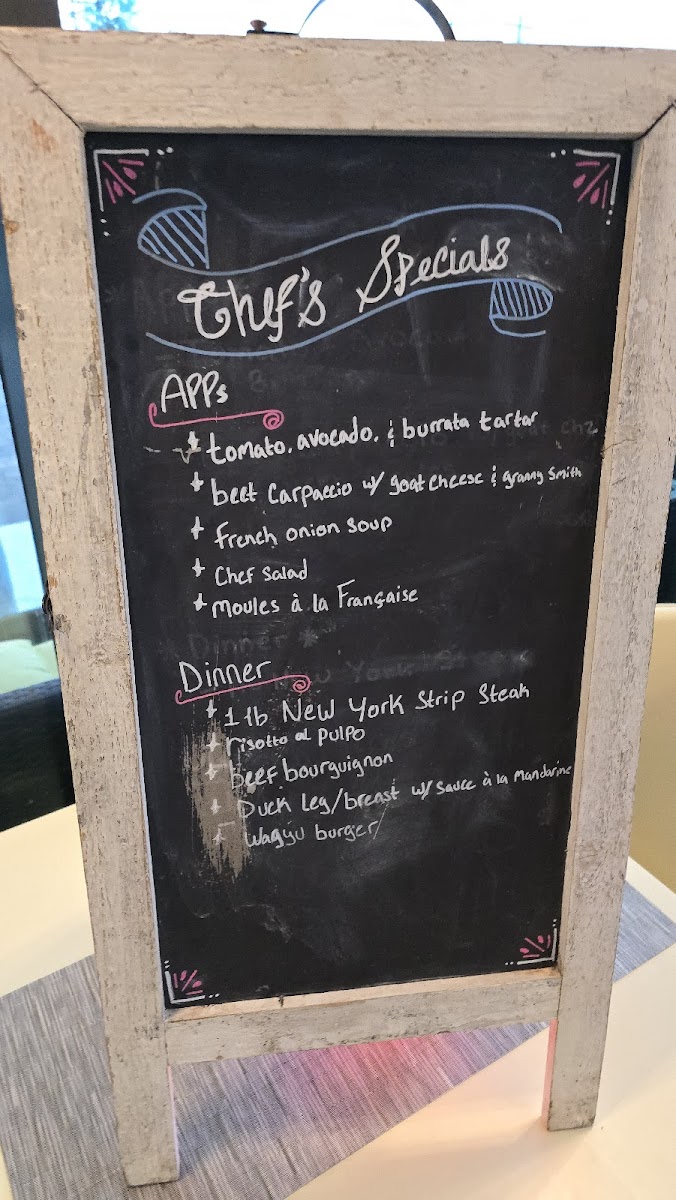 Chef's Specials
APPs
tomato, avocado, & burrata tartar
beet Carpaccio w/ goat cheese & granny Smith
French onion Soup
Chef Salad
Moules à la Française
Dinner
1 lb New York Strip Steak
risotto al PulPo
beef bourguignon
Duck Leg/breast w/ Sauce à la Mandarine
Wagyu burger